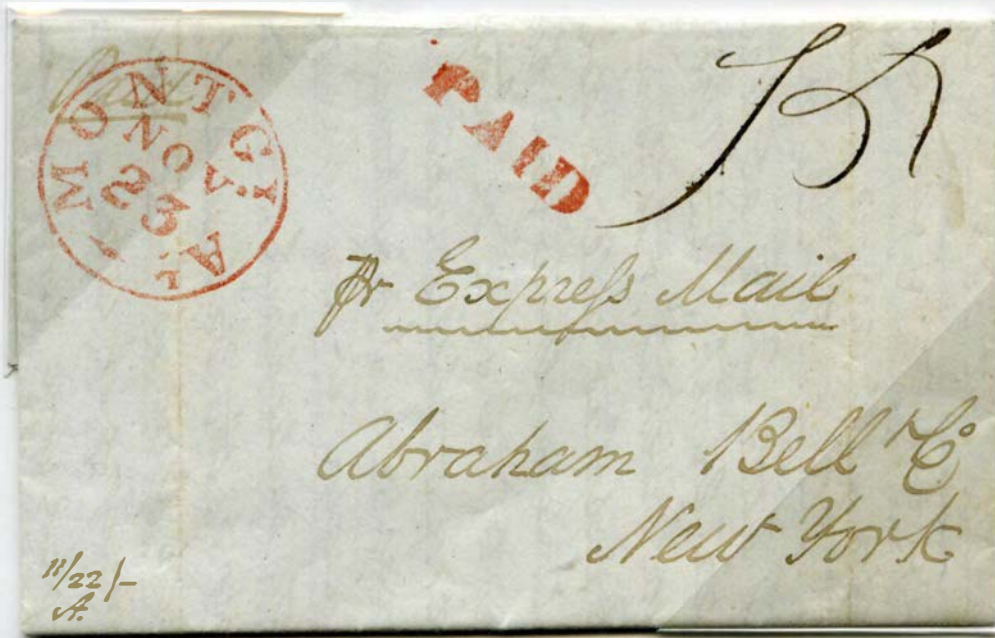 Paid
MONTGY AL
NOV
23
PAID
Pr Express Mail
Abraham Bell & Co
New York
11/22/-
A.